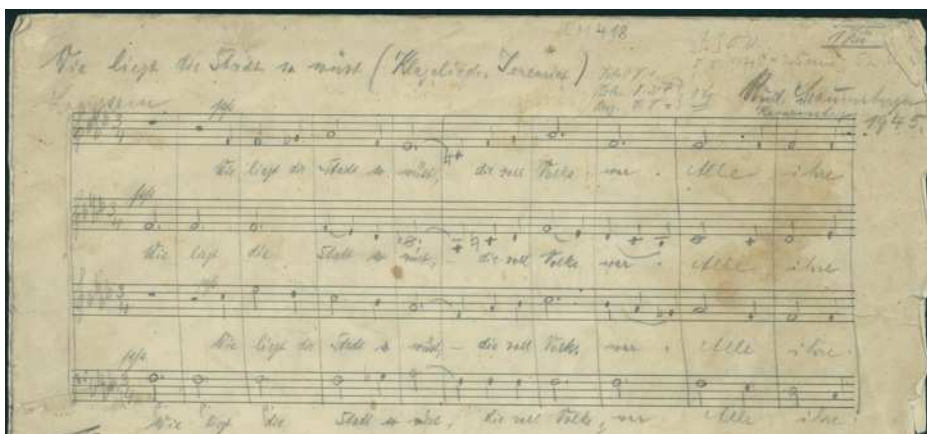 KM 418
Wie liegt die Stadt so wüst (Klagelieder Jeremiä)
Langsam
Rud. Mauersberger
1945.
Wie liegt die Stadt so wüst, die voll Volks war. Alle ihre
Wie liegt die Stadt so wüst, – die voll Volks war. Alle ihre
Wie liegt die Stadt so wüst, – die voll Volks war. Alle ihre
Wie liegt die Stadt so wüst, die voll Volks, war Alle ihre